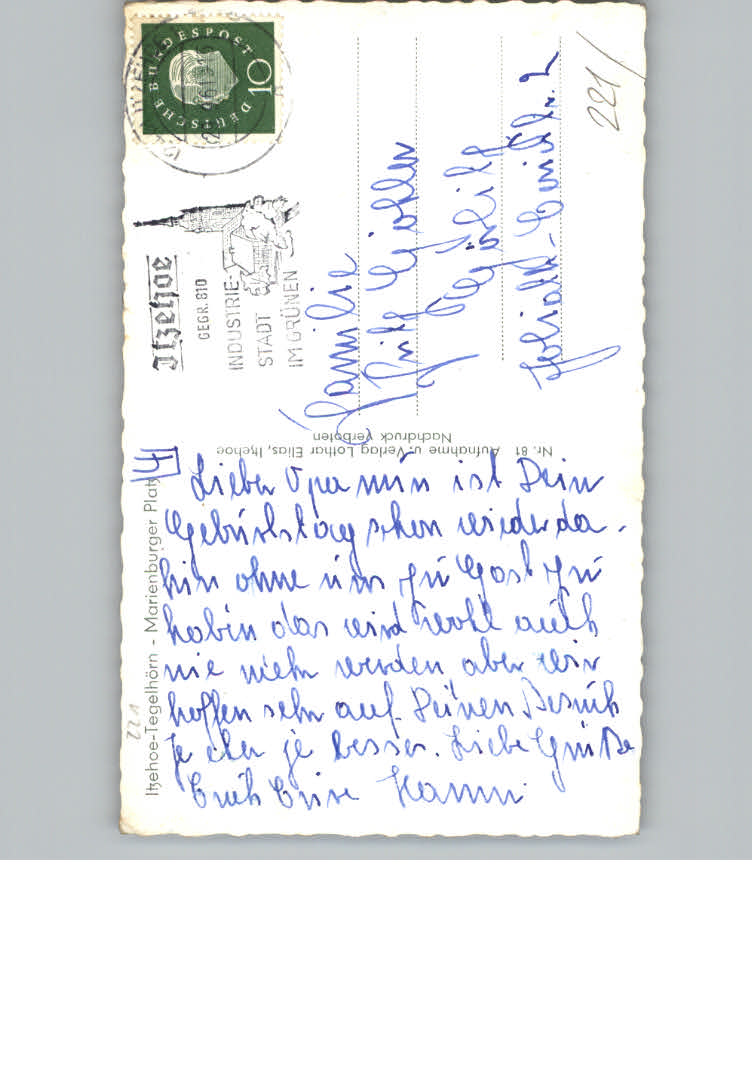 DEUTSCHE BUNDESPOST
10
Itzehoe
GEGR. 810
INDUSTRIE-
STADT
IM GRÜNEN
221/
Familie
Fritz
Nr. 81 Aufnahme u. Verlag Lothar Elias, Itzehoe
Nachdruck verboten
Itzehoe-Tegelhörn - Marienburger Platz
221
Lieber Opa nun ist Dein
Geburtstag schon wieder da-
hin ohne uns zu Gast zu
haben das wird wohl auch
nie mehr werden aber wir
hoffen sehr auf Deinen Besuch
Je eher je besser. Liebe Grüße